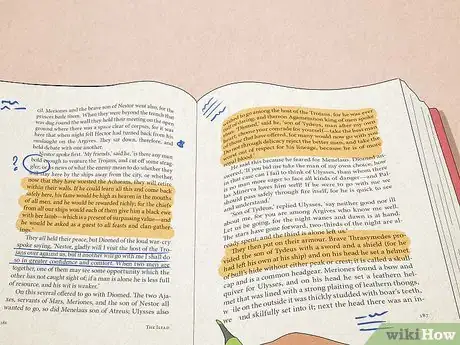 cil. Meriones and the brave son of Nestor went also, for the
princes bade them. When they were beyond the trench that
was dug round the wall they held their meeting on the open
ground where there was a space clear of corpses, for it was
here that when night fell Hector had turned back from his
onslaught on the Argives. They sat down, therefore, and
held debate with one another.
Nestor spoke first. 'My friends,' said he, 'is there any man
bold enough to venture the Trojans, and cut off some strag-
news of what the enemy mean to do whether they
will stay here by the ships away from the city, or whether,
now that they have worsted the Achaeans, they will retire
within their walls. If he could learn all this and come back
safely here, his fame would be high as heaven in the mouths
of all men, and he would be rewarded richly; for the chiefs
from all our ships would each of them give him a black ewe
with her lamb—which is a present of surpassing value—and he
would be asked as a guest to all feasts and clan-
gatherings.'
They all held their peace, but Diomed of the loud war-cry
spoke saying, 'Nestor, gladly will I visit the host of the Tro-
jans over against us, but if another will go with me I shall do
so in greater confidence and comfort. When two men are
together, one of them may see some opportunity which the
other has not caught sight of; if a man is alone he is less full
of resource, and his wit is weaker.'
On this several offered to go with Diomed. The two Aja-
xes, servants of Mars, Meriones, and the son of Nestor all
wanted to go, so did Menelaus son of Atreus; Ulysses also
186
The Iliad
wished to go among the host of the Trojans, for he was ever
full of daring, and thereon Agamemnon king of men spoke
thus: 'Diomed,' said he, 'son of Tydeus, man after my own
heart, choose your comrade for yourself—take the best man
of those that have offered, for many would now go with you.
Do not through delicacy reject the better man, and take the
worst out of respect for his lineage, because he is of more
royal blood.'
He said this because he feared for Menelaus. Diomed an-
swered, 'If you bid me take the man of my own choice, how
in that case can I fail to think of Ulysses, than whom there
is no man more eager to face all kinds of danger—and Pal-
las Minerva loves him well? If he were to go with me we
should pass safely through fire itself, for he is quick to see
and understand.'
'Son of Tydeus,' replied Ulysses, 'say neither good nor ill
about me, for you are among Argives who know me well.
Let us be going, for the night wanes and dawn is at hand.
The stars have gone forward, two-thirds of the night are al-
ready spent, and the third is alone left us.'
They then put on their armour. Brave Thrasymedes pro-
vided the son of Tydeus with a sword and a shield (for he
had left his own at his ship) and on his head he set a helmet
of bull's hide without either peak or crest; it is called a skull-
cap and is a common headgear. Meriones found a bow and
quiver for Ulysses, and on his head he set a leathern hel-
met that was lined with a strong plaiting of leathern thongs,
while on the outside it was thickly studded with boar's teeth,
and skilfully set into it; next the head there was an in-
187
wikiHow